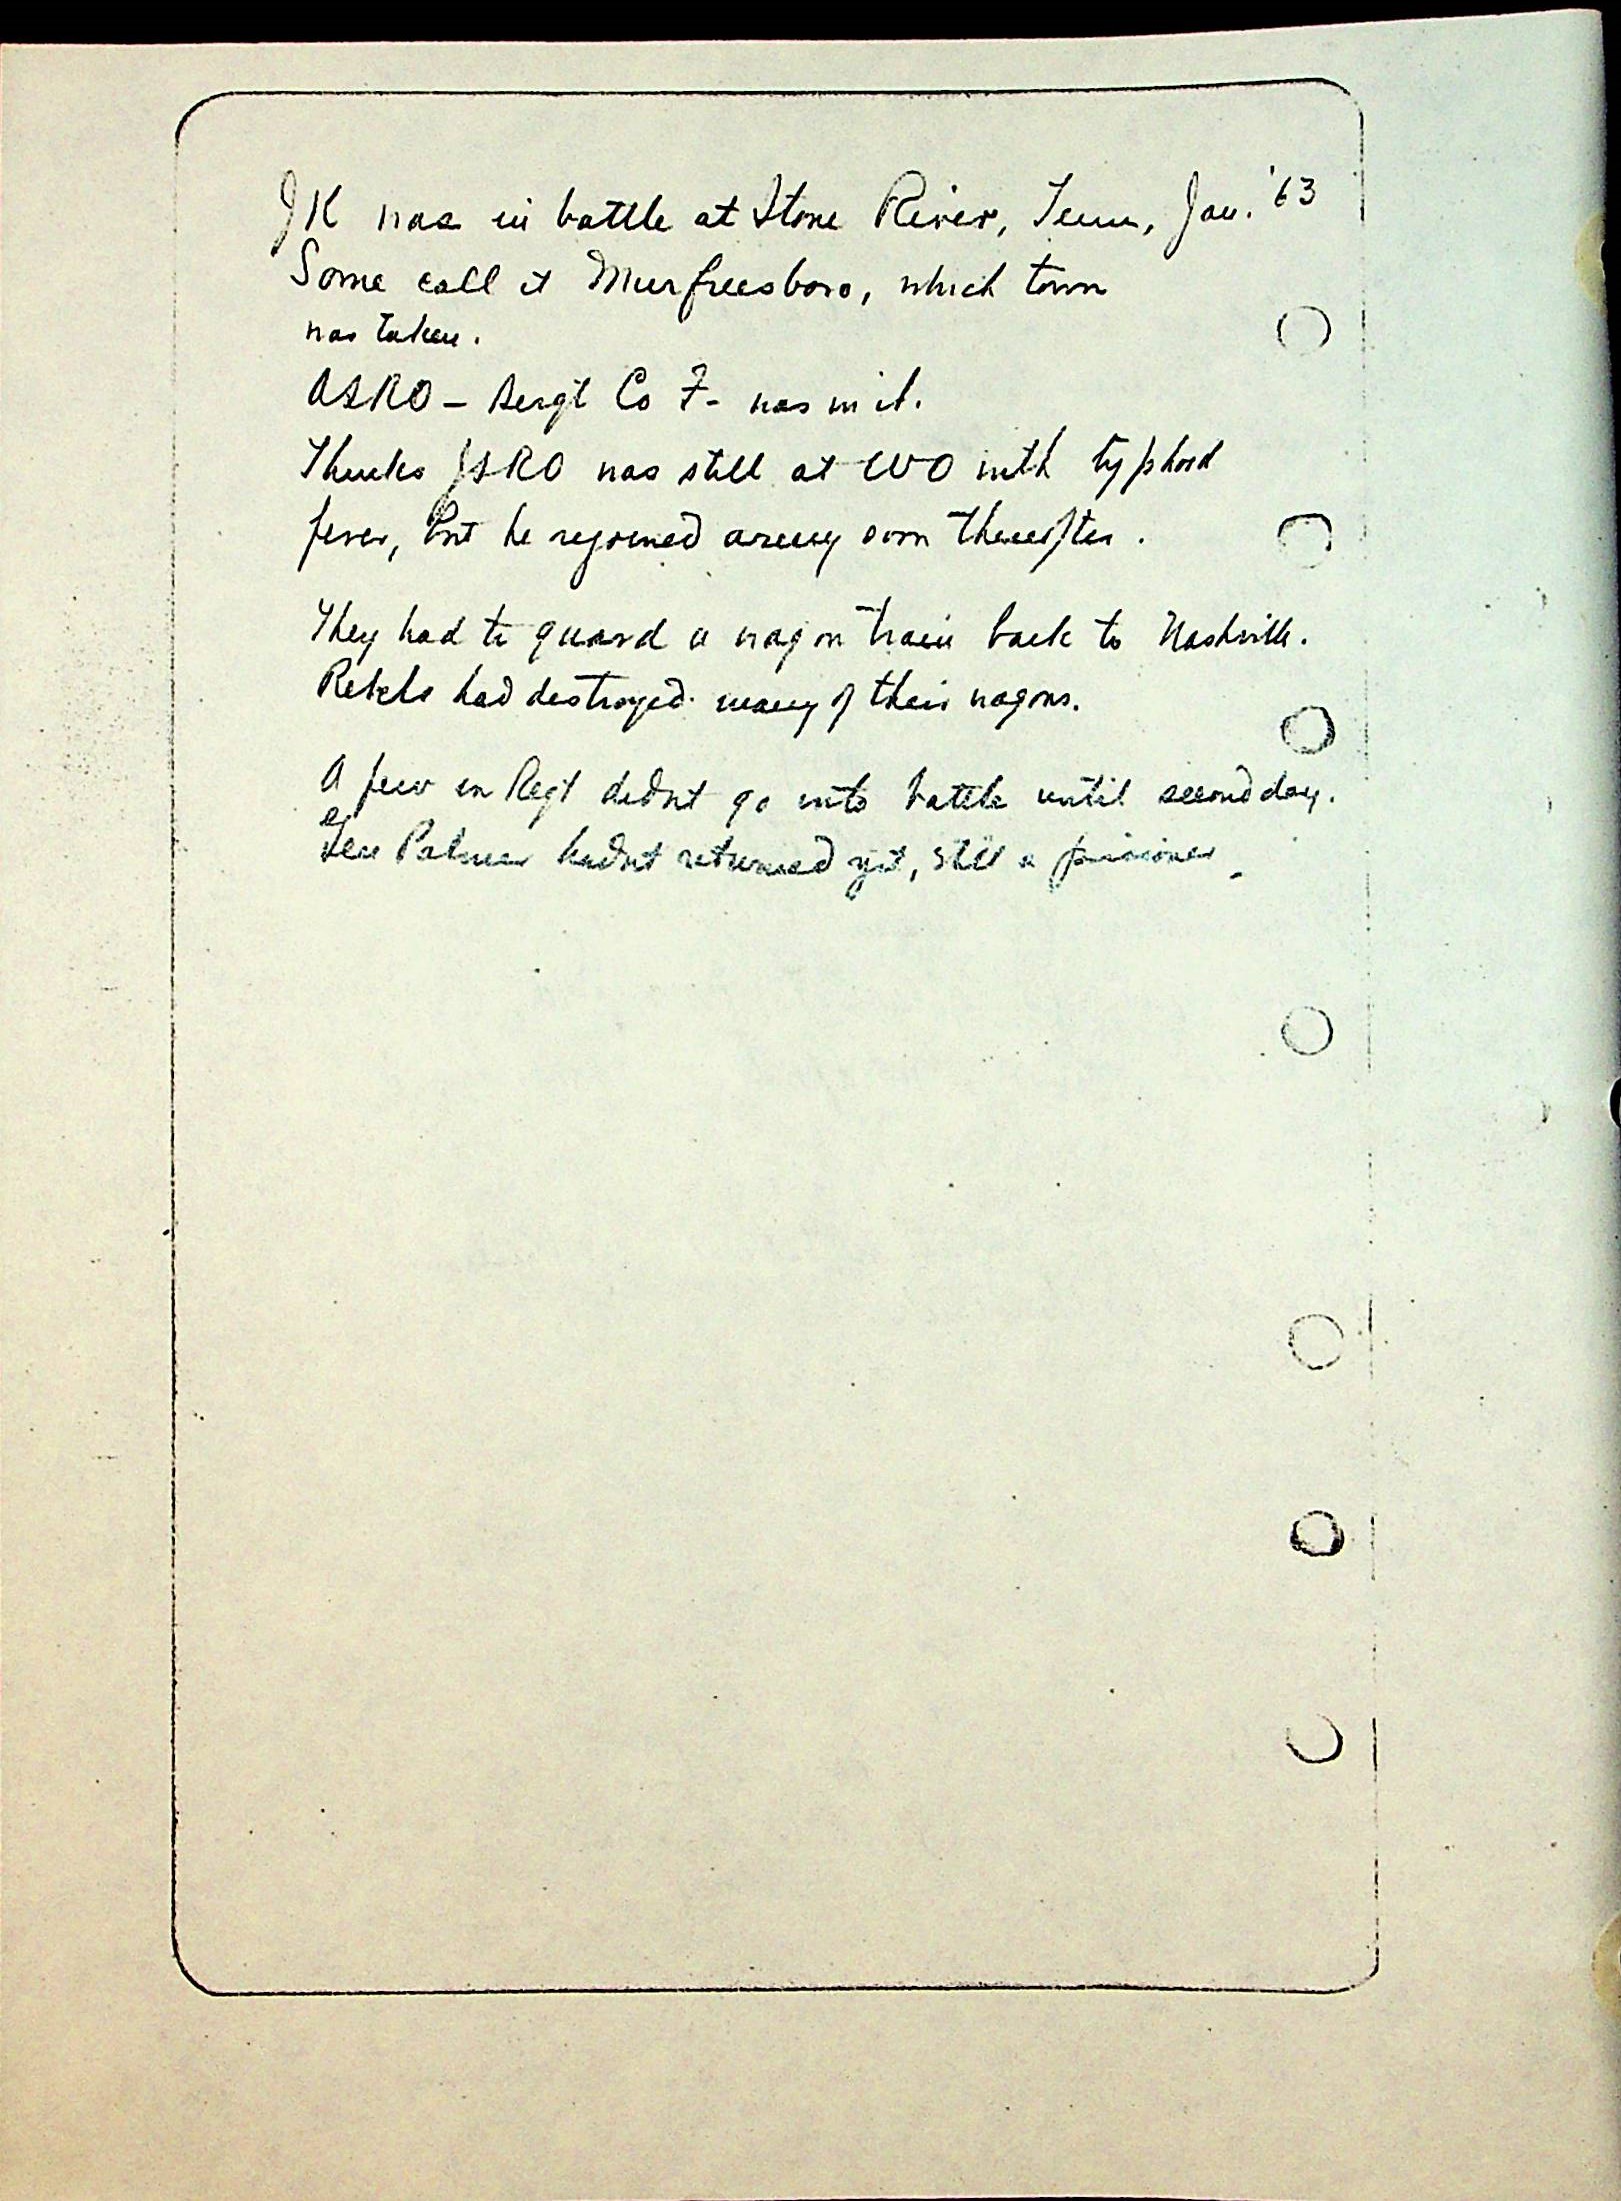 JK was in battle at Stone River, Tenn, Jan. '63
Some call it Murfreesboro, which town
was taken.
ASRO - Sergt Co F - was in it.
Thinks JSRO was still at WO with typhoid
fever, but he rejoined army soon thereafter.
They had to guard a wagon train back to Nashville.
Rebels had destroyed many of their wagons.
A few in Regt didnt go into battle until second day.
Palmer hadnt returned yet, still a prisoner